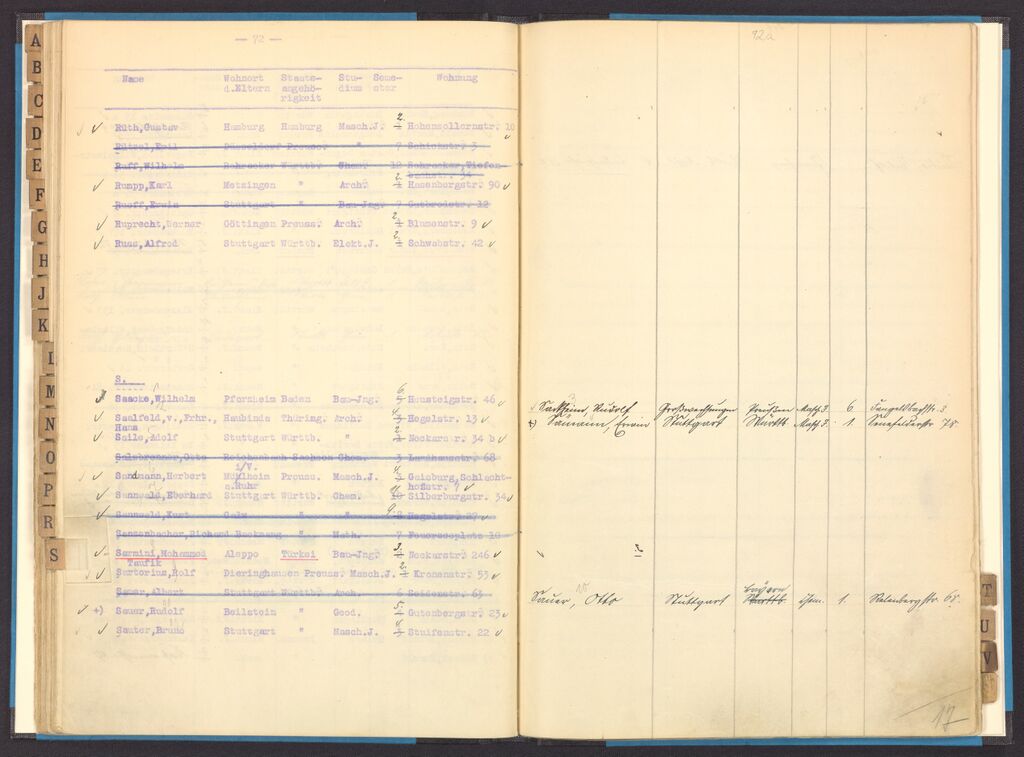 A
B
C
D
E
F
G
H
J
K
L
M
N
O
P
R
S
— 72 —
Name Wohnort d.Eltern Staats-angehö-rigkeit Stu-dium Seme-ster Wohnung
Rüth,Gustav Hamburg Hamburg Masch.J. 2 Hohenzollernstr. 10
Rützel,Emil Düsseldorf Preuss. " 7 Schickstr. 3
Ruff,Wilhelm Rohracker Württbg. Chem. 10 Rohracker,Tiefen-
bachstr. 34
Rumpp,Karl Metzingen " Arch. 2 Hasenbergstr. 90
Rueff,Erwin Stuttgart " Bau-Jng. 7 Gutbrodstr. 12
Ruprecht,Werner Göttingen Preuss. Arch. 2 Blumenstr. 9
Russ,Alfred Stuttgart Württb. Elekt.J. 2 Schwabstr. 42
S.
Saacke,Wilhelm Pforzheim Baden Bau-Jng. 6 Hausteigstr. 46
Saalfeld,v.,Frhr., Haubinda Thüring. Arch. Hegelstr. 13
Hans
Saile,Adolf Stuttgart Württb. " 2 Neckarstr. 34 b
Salzbrenner,Otto Reichenbach Sachsen Chem. 3 Landhausstr. 68
Sandmann,Herbert Mülheim i/V. Preuss. Masch.J. 4 Gaisburg,Schlacht-
a.Ruhr hofstr. 7
Sannwald,Eberhard Stuttgart Württb. Chem. 10 Silberburgstr. 34
Sannwald,Kurt Calw " " 9 Hegelstr. 27
Sanzenbacher,Richard Backnang " Math. 7 Feuerseeplatz 10
Sarmini,Mohammed Aleppo Türkei Bau-Jng. 3. Neckarstr. 246
Taufik
Sartorius,Rolf Dieringhausen Preuss. Masch.J. 2. Kronenstr. 53
Sauer,Albert Stuttgart Württb. Arch. 6 Seidenstr. 63
+) Sauer,Rudolf Beilstein " Geod. 5. Gutenbergstr. 23
Sauter,Bruno Stuttgart " Masch.J. 4 Stuifenstr. 22
72a
Rudolf Preußen Masch.J. 6. 3
+) Samann, Erwin Stuttgart Württ. Masch.J. 1. Senefelderstr. 78
3
Sauer, Otto Stuttgart Württb. Bayern chem. 1. Rotenbergstr. 68
17
T
U
V